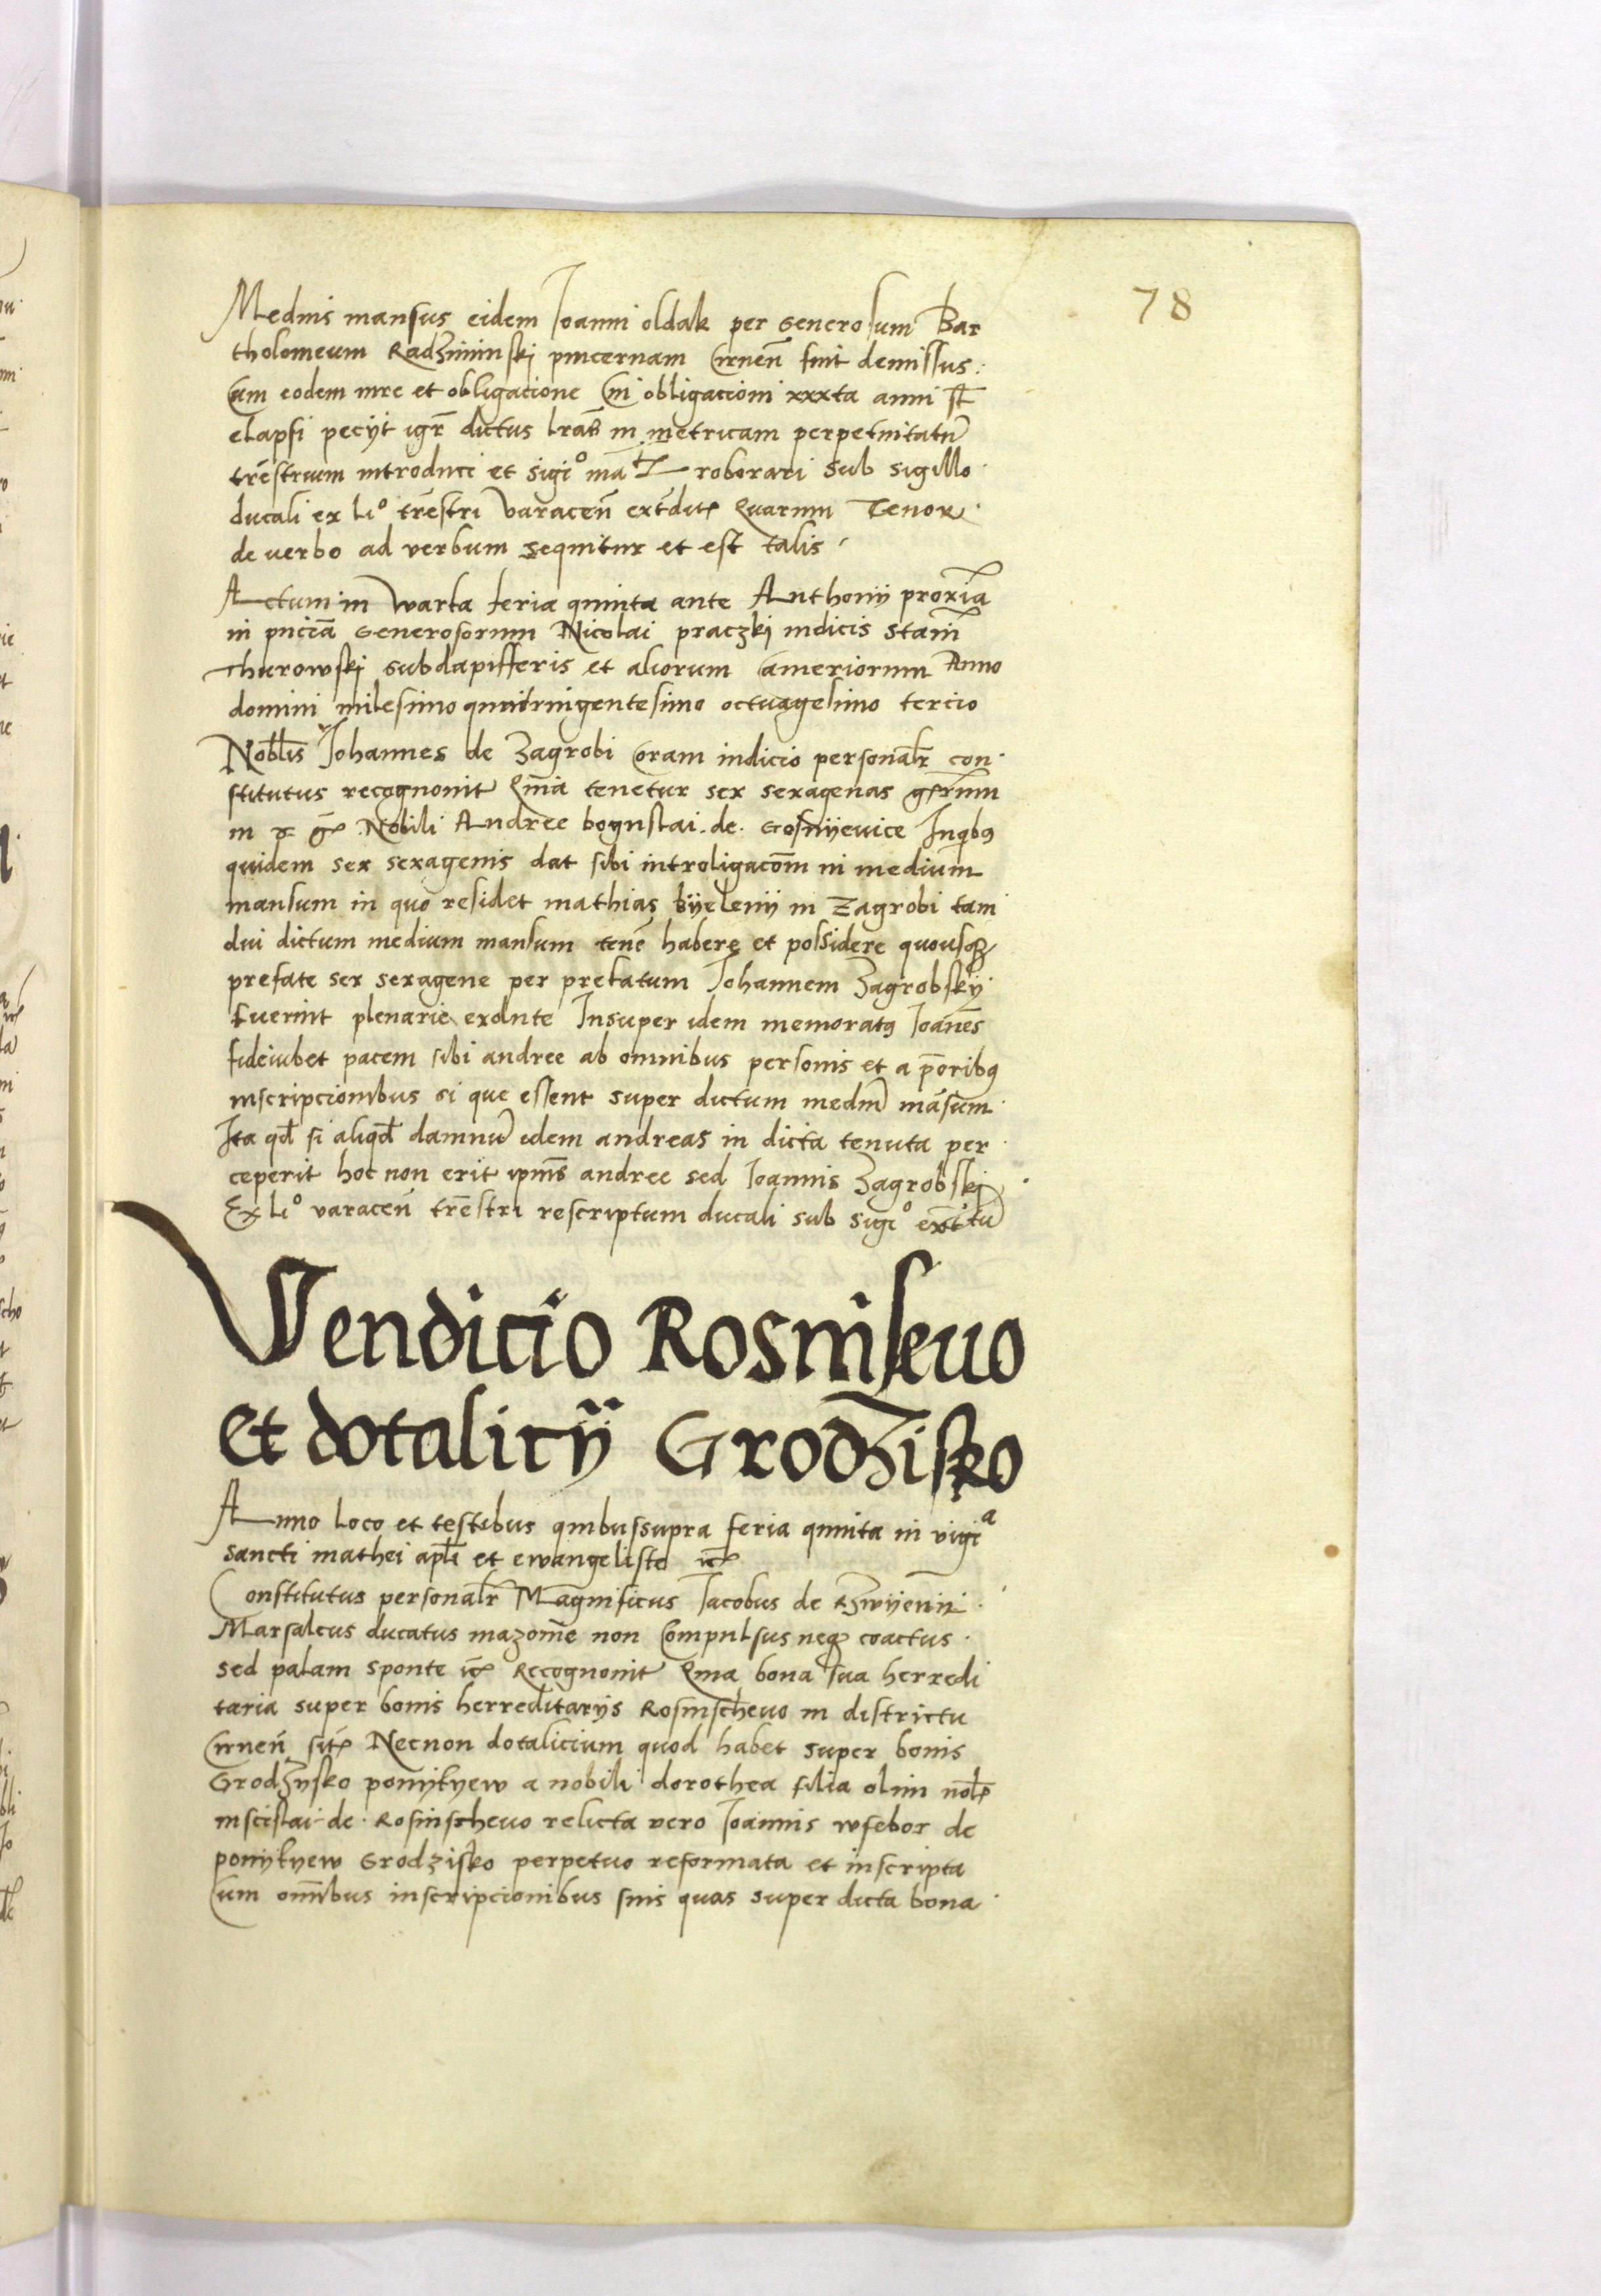 78
Medius mansus eidem Joanni oldak per Generosum Bar
tholomeum Radziminski pincernam Cirneñ fuit demissus.
Cum eodem iure et obligacione Cui obligacioni xxxta anni st̄
elapsi pecijt igr̄ dictus lrās in metricam perpetuitatū
trēstrium introduci et sigiº roborari sub sigillo
ducali ex liº trēstri varaceñ Quarum Tenor
de uerbo ad verbum sequitur et est talis
Actum in warka feria quinta ante Anthonij proxīa
in pn̄ciā Generosorum Nicolai praczki iudicis Stanī
Thurowski subdapifferis et aliorum Cameriorum Anno
domini milesimo quadringentesimo octuagesimo tercio
Nobl̄is Johannes de Zagrobi Coram iudicio personalr̄ con
stitutus recognouit Quiā tenetur sex sexagenas grs̄rum
in Nobili Andree bogustai. de. Gosnijeuice Inqbꝰ
quidem sex sexagenis dat sibi introligacōm in medium
mansum in quo residet mathias byelenij in Zagrobi tam
diu dictum medium mansum tenē habere et possidere quousqꝫ
prefate sex sexagene per prefatum Johannem Zagrobsky
fuerint plenarie exolute Insuper idem memoratꝰ Joānēs
fideiubet pacem sibi andree ab omnibus personis et a p̄oribꝰ
inscripcionibus si que essent super dictum mediū mānsum
Ita qđ si aliqđ damnū idem andreas in dicta tenuta per
ceperit hoc non erit ipiūs andree sed Joannis Zagrobskj
Ex liº varaceñ trēstri rescriptum ducali sub sigiº
Vendicio Rosnisevo
et dotalicij Grodzisko
Anno loco et testibus quibussupra feria quinta in vigiª
sancti mathei apl̄i et ewangeliste
Constitutus personalr̄ Magnificus Jacobus de
Marsalcus ducatus mazouīe non Compulsus neqꝫ coactus
sed palam sponte Recognouit Quia bona sua herredi
taria super bonis herreditarijs Rosnischeuo in districtu
Cirneñ Necnon dotalicium quod habet super bonis
Grodzysko ponykyew a nobili dorothea filia olim
mscistai de Rosnischeuo relicta vero Joannis wsebor de
ponykyew Grodzisko perpetuo reformata et inscripta
Cum omībus inscripcionibus suis quas super dicta bona